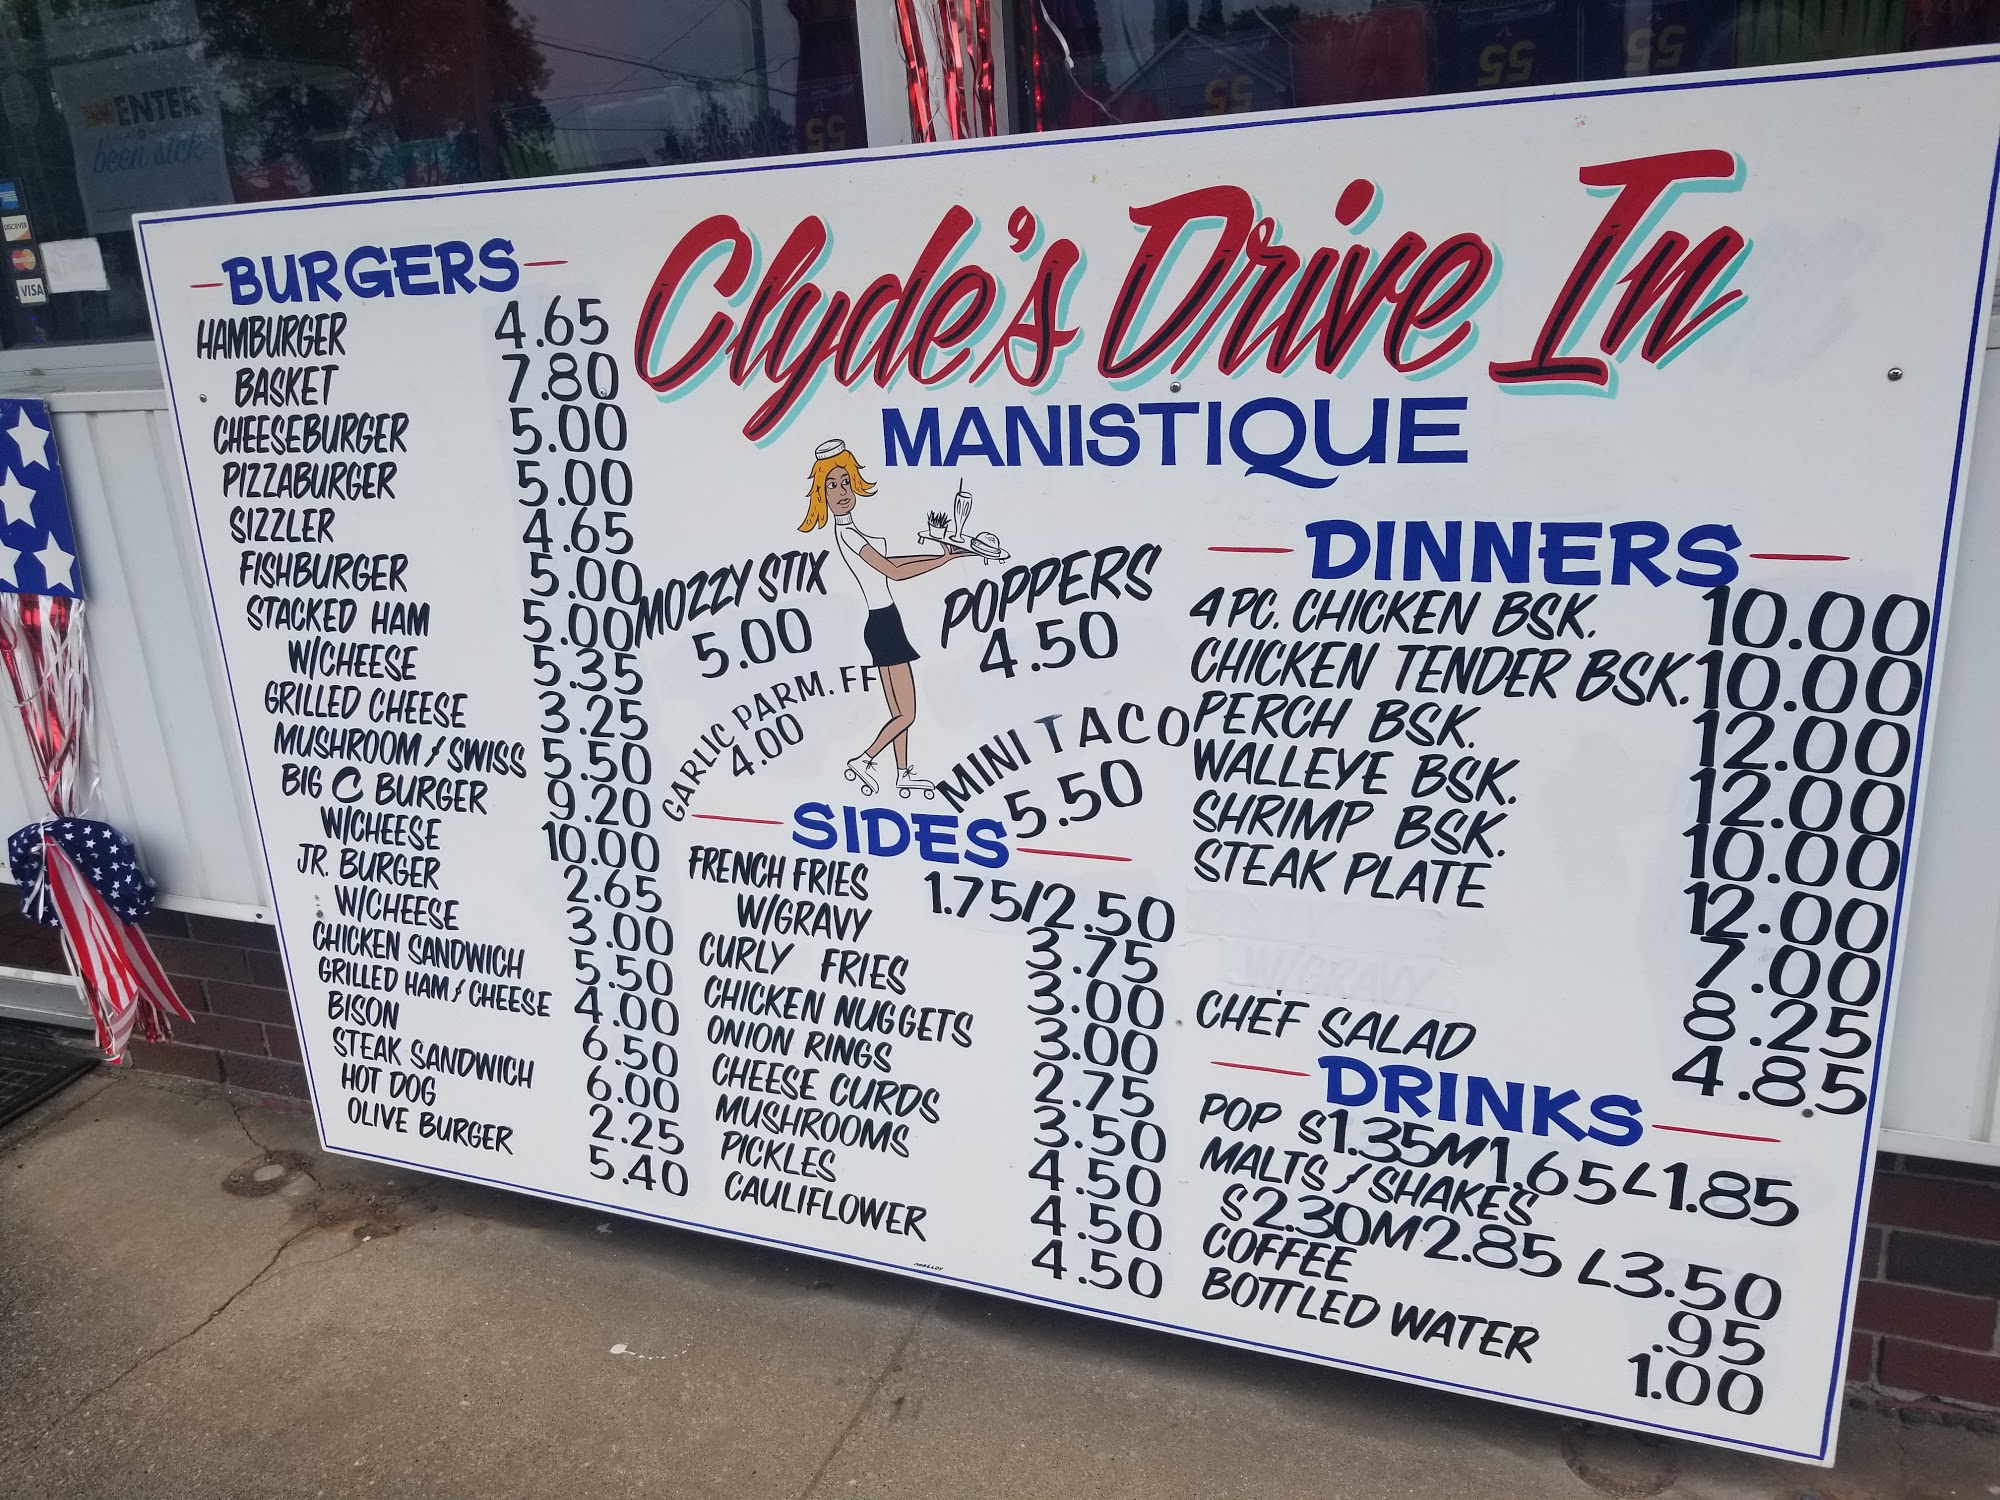 ENTER
been sick
DISCOVER
VISA
55
55
55
55
Clyde's Drive In
MANISTIQUE
BURGERS
HAMBURGER 4.65
BASKET 7.80
CHEESEBURGER 5.00
PIZZABURGER 5.00
SIZZLER 4.65
FISHBURGER 5.00
STACKED HAM 5.00
W/CHEESE 5.35
GRILLED CHEESE 3.25
MUSHROOM & SWISS 5.50
BIG C BURGER 9.20
W/CHEESE 10.00
JR. BURGER 2.65
W/CHEESE 3.00
CHICKEN SANDWICH 5.50
GRILLED HAM & CHEESE 4.00
BISON 6.50
STEAK SANDWICH 6.00
HOT DOG 2.25
OLIVE BURGER 5.40
MOZZY STIX
5.00
POPPERS
4.50
GARLIC PARM. FF
4.00
MINI TACO
5.50
SIDES
FRENCH FRIES 1.75/2.50
W/GRAVY 3.75
CURLY FRIES 3.00
CHICKEN NUGGETS 3.00
ONION RINGS 2.75
CHEESE CURDS 3.50
MUSHROOMS 4.50
PICKLES 4.50
CAULIFLOWER 4.50
MALLOY
DINNERS
4 PC. CHICKEN BSK. 10.00
CHICKEN TENDER BSK. 10.00
PERCH BSK. 12.00
WALLEYE BSK. 12.00
SHRIMP BSK. 10.00
STEAK PLATE 12.00
7.00
W/GRAVY 8.25
CHEF SALAD 4.85
DRINKS
POP S1.35 M1.65 L1.85
MALTS & SHAKES
S2.30 M2.85 L3.50
COFFEE .95
BOTTLED WATER 1.00